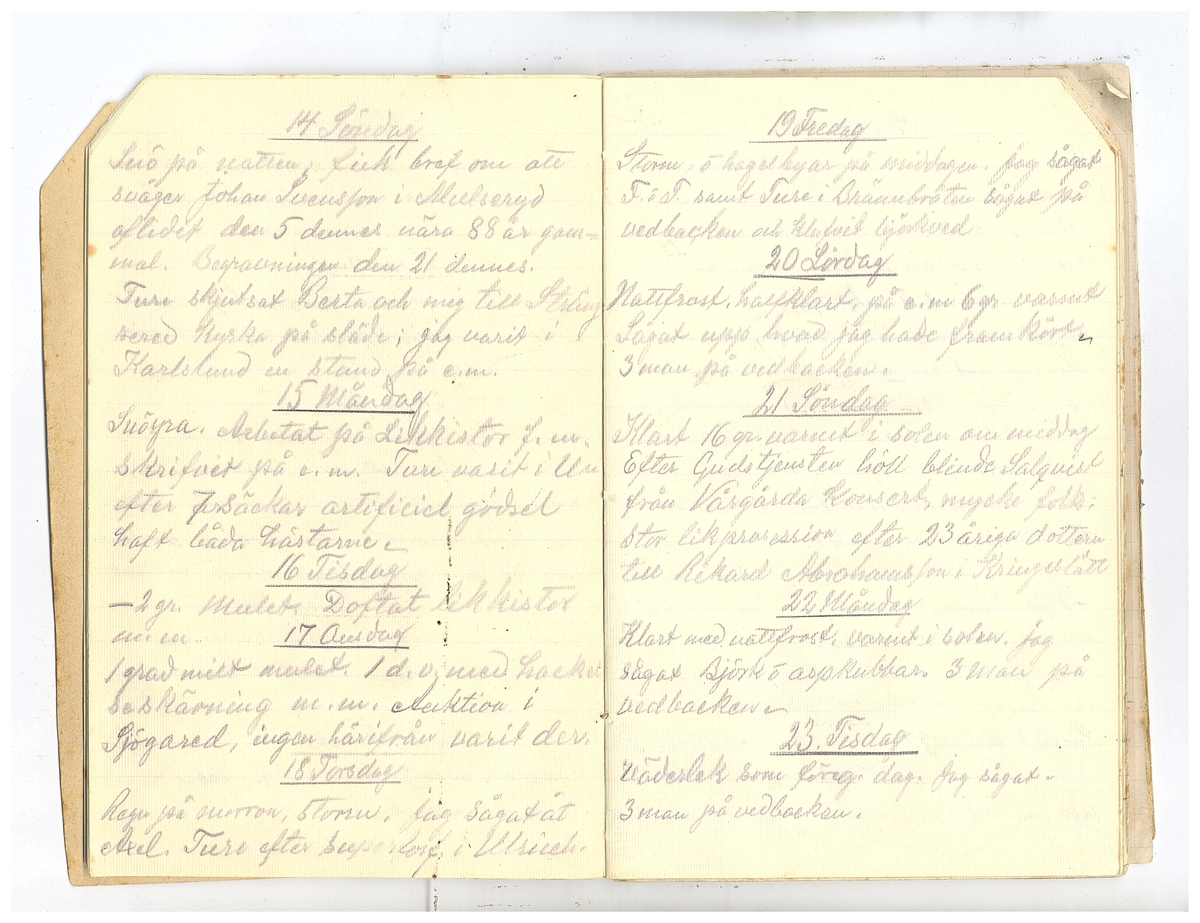 14 Söndag
Snö på natten; fick bref om att
svåger Johan Svensson i Mulseryd
aflidet den 5 dennes nära 88 år gam-
mal. Begravningen den 21 dennes.
Ture skjutsat Berta och mig till Sträng
sered Kyrka på släde; jag varit i
Karlslund en stund på e.m.
15 Måndag
Snöyra. Arbetat på Likkistor f.m.
skrifvit på e.m. Ture varit i Ul
efter 7 säckar artificiel gödsel
haft båda hästarne.
16 Tisdag
-2 gr. Mulet. Doftat likkistor
m.m.
17 Onsdag
1 grad milt mulet. 1 d.v. med hackel
seskärning m.m. Auktion i
Sjögared, ingen härifrån varit der.
18 Torsdag
Regn på morron, storm. jag sågat åt
Axel. Ture efter superfosf. i Ulriceh.
19 Fredag
Storm, o hagelbyar på middagen. jag sågat
F. o F. samt Ture i Brännbråten sågat på
vedbacken och klufvit björkved
20 Lördag
Nattfrost. halfklart. på e.m. 6 gr. varmt
Sågat upp hvad jag hade framkört
3 man på vedbacken.
21 Söndag
Klart 16 gr. varmt i solen om middag
Efter Gudstjensten höll blinde Salqvist
från Vårgårda Konsert, mycke folk:
Stor likprosession efter 23 åriga dottern
till Rikard Abrahamsson i Kringeslätt
22 Måndag
Klart med nattfrost. varmt i solen. jag
sågat Björk o aspkubbar. 3 man på
vedbacken
23. Tisdag
Väderlek som föreg. dag. Jag sågat.
3 man på vedbacken.